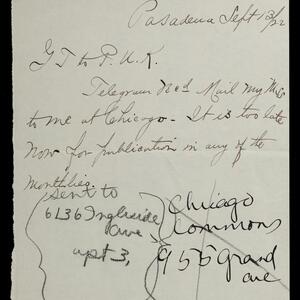 Pasadena Sept 13/22
G T to P. U. K.
Telegram No 1 Mail my Mss
to me at Chicago - It is too late
now for publication in any of the
monthlies.
sent to
6136 Ingleside
ave
apt 3,
Chicago
Commons
955 Grand
ave